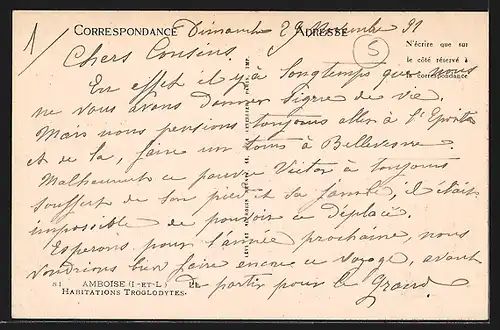 1/
CORRESPONDANCE
ADRESSE
Dimanche 29 Novembre 31
5
N'écrire que sur
le côté réservé à
la correspondance
Chers Cousins
En effet il y a longtemps que nous
ne vous avons donner signe de vie
Mais nous pensions toujours aller à l'
et de la, faire un tours à Bellevesne
Malheureusement ce pauvre Victor à toujours
souffert de son pied et sa jambe, il était
impossible de pouvoir ce déplacé.
Esperons pour l'année prochaine, nous
voudrions bien faire encore ce voyage, avant
de partir pour le Grand
81 AMBOISE (I-ET-L) LL
HABITATIONS TROGLODYTES.